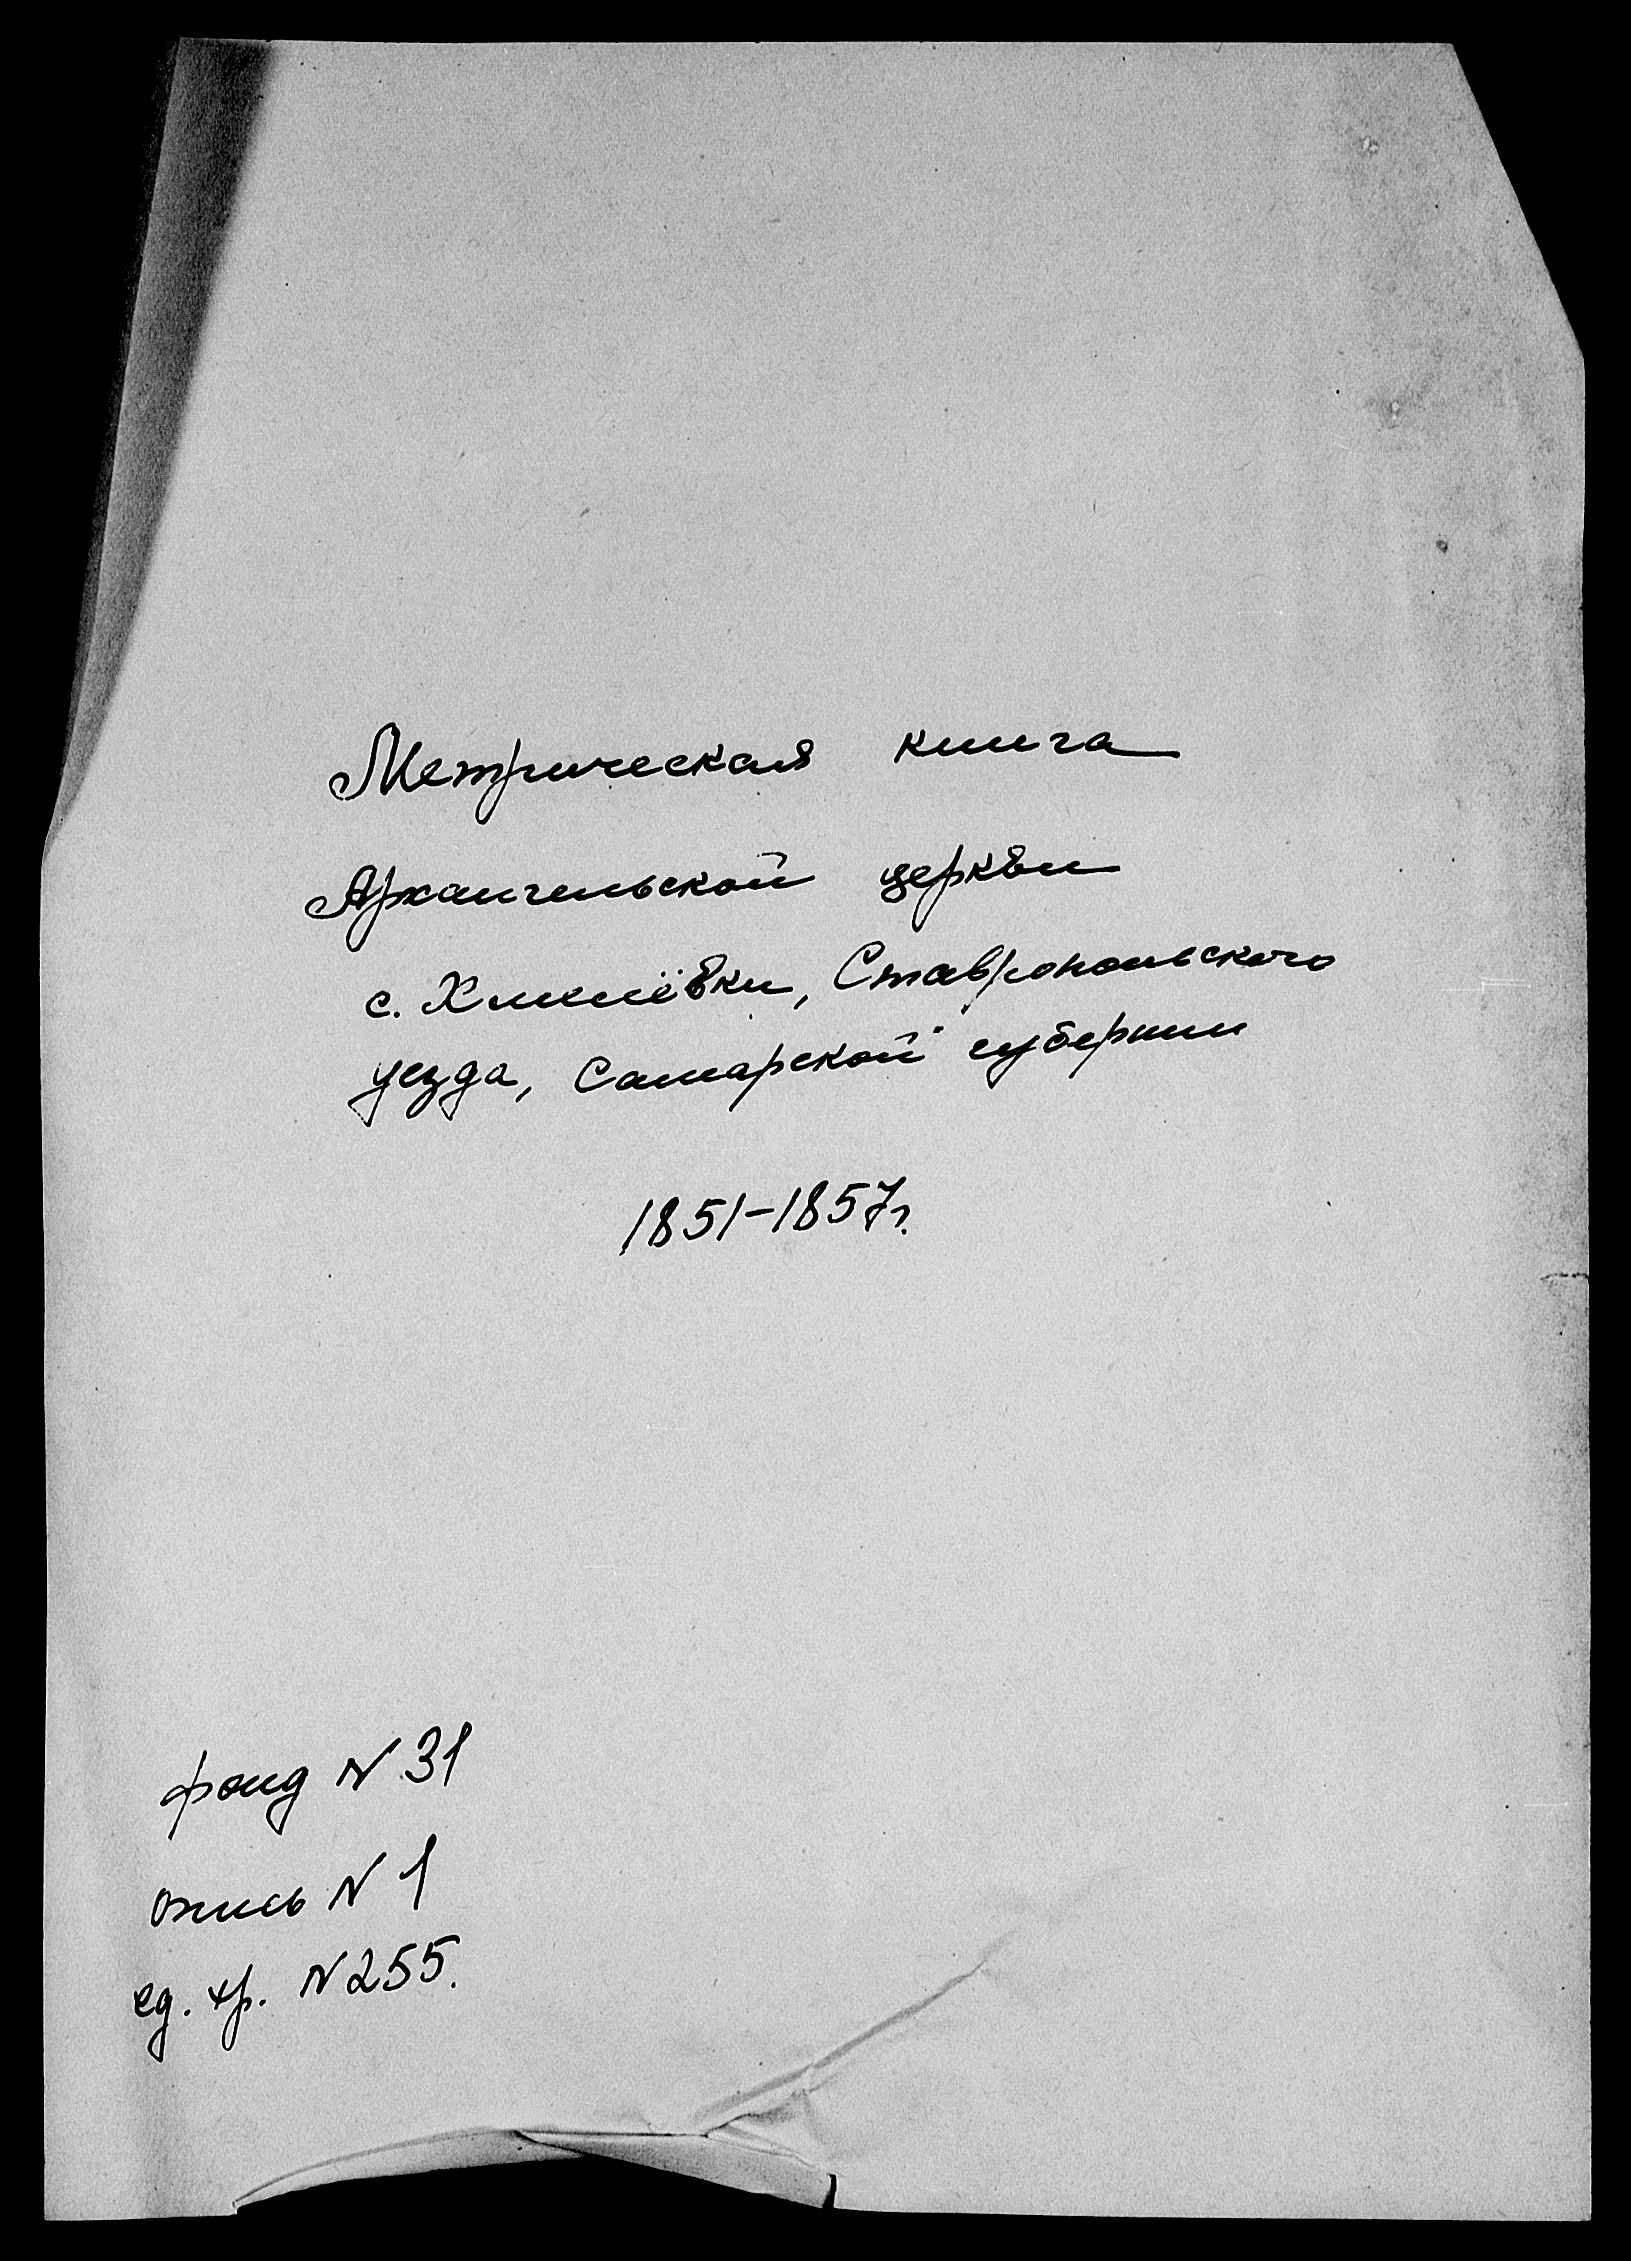 Метрическая книга
Архангельской церкви
с. Хмелёвки, Ставропольского
уезда, Самарской губернии
1851-1857г.
фонд N 31
опись N 1
ед. хр. N 255.